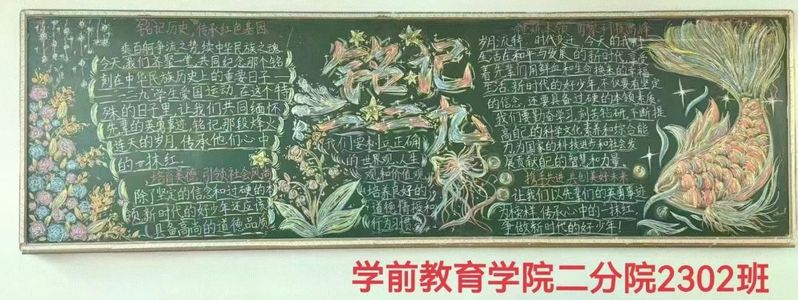 铭记历史 传承红色基因
乘百舸争流之势,续中华民族之魂
今天,我们齐聚一堂,共同纪念那个铭
刻在中华民族历史上的重要日子——
一二·九学生爱国运动,在这个特
殊的日子里,让我们共同缅怀
先辈的英勇事迹,铭记那段烽火
连天的岁月,传承他们心中
的一抹红.
培育美德 引领社会风尚
除了坚定的信念和过硬的本
领,新时代的好少年还应该
具备高尚的道德品质
铭记
一二九
我们要树立正确
的世界观、人生
观和价值观
培养良好的
道德情操和
行为习惯
岁月
生活在和平与发展的新时代,享受
着先辈们用鲜血和生命换来的幸福
生活,新时代的好少年,不仅要有坚定
的信念,还要具备过硬的本领素质
我们要勤奋学习,刻苦钻研,不断提
高自己的科学文化素养和综合能
力,为国家的科技进步和社会发
展贡献自己的智慧和力量.
携手并进 共创美好未来
让我们以先辈们的英勇事迹
为榜样,传承心中的一抹红,
争做新时代的好少年!
学前教育学院二分院2302班